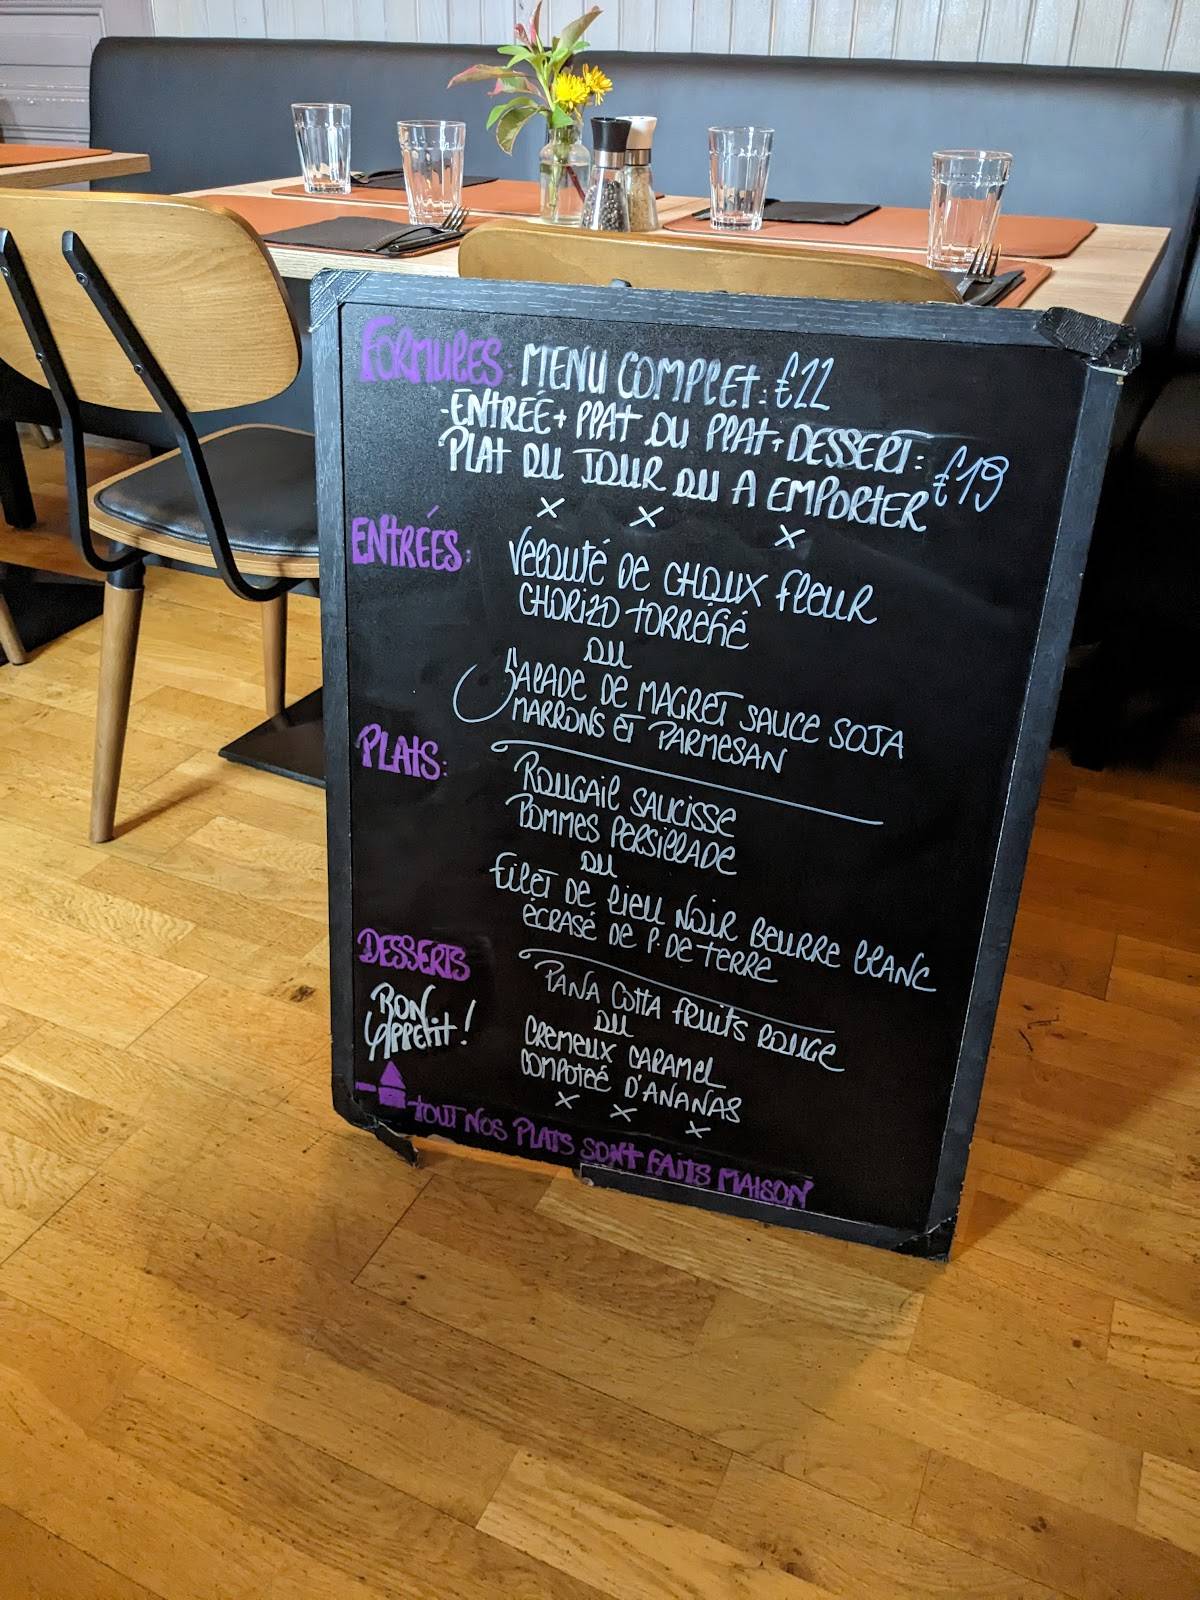 FORMULES: MENU COMPLET: €22
-ENTREÉ + PLAT OU PLAT + DESSERT: €19
PLAT DU JOUR OU A EMPORTER
x x x
ENTRÉES: Velouté DE CHOUX fleur
CHORIZO TORRÉFIÉ
OU
SALADE DE MAGRET SAUCE SOJA
MARRONS ET PARMESAN
PLATS: ROUGAIL SAUCISSE
POMMES PERSILLADE
OU
filet DE lieu NOIR BEURRE BLANC
ÉCRASÉ DE P. DE TERRE
DESSERTS PANA COTTA fRUITS ROUGE
OU
BON APPETIT! CREMEUX CARAMEL
COMPOTEÉ D'ANANAS
x x x
TOUT NOS PLATS SONT FAITS MAISON